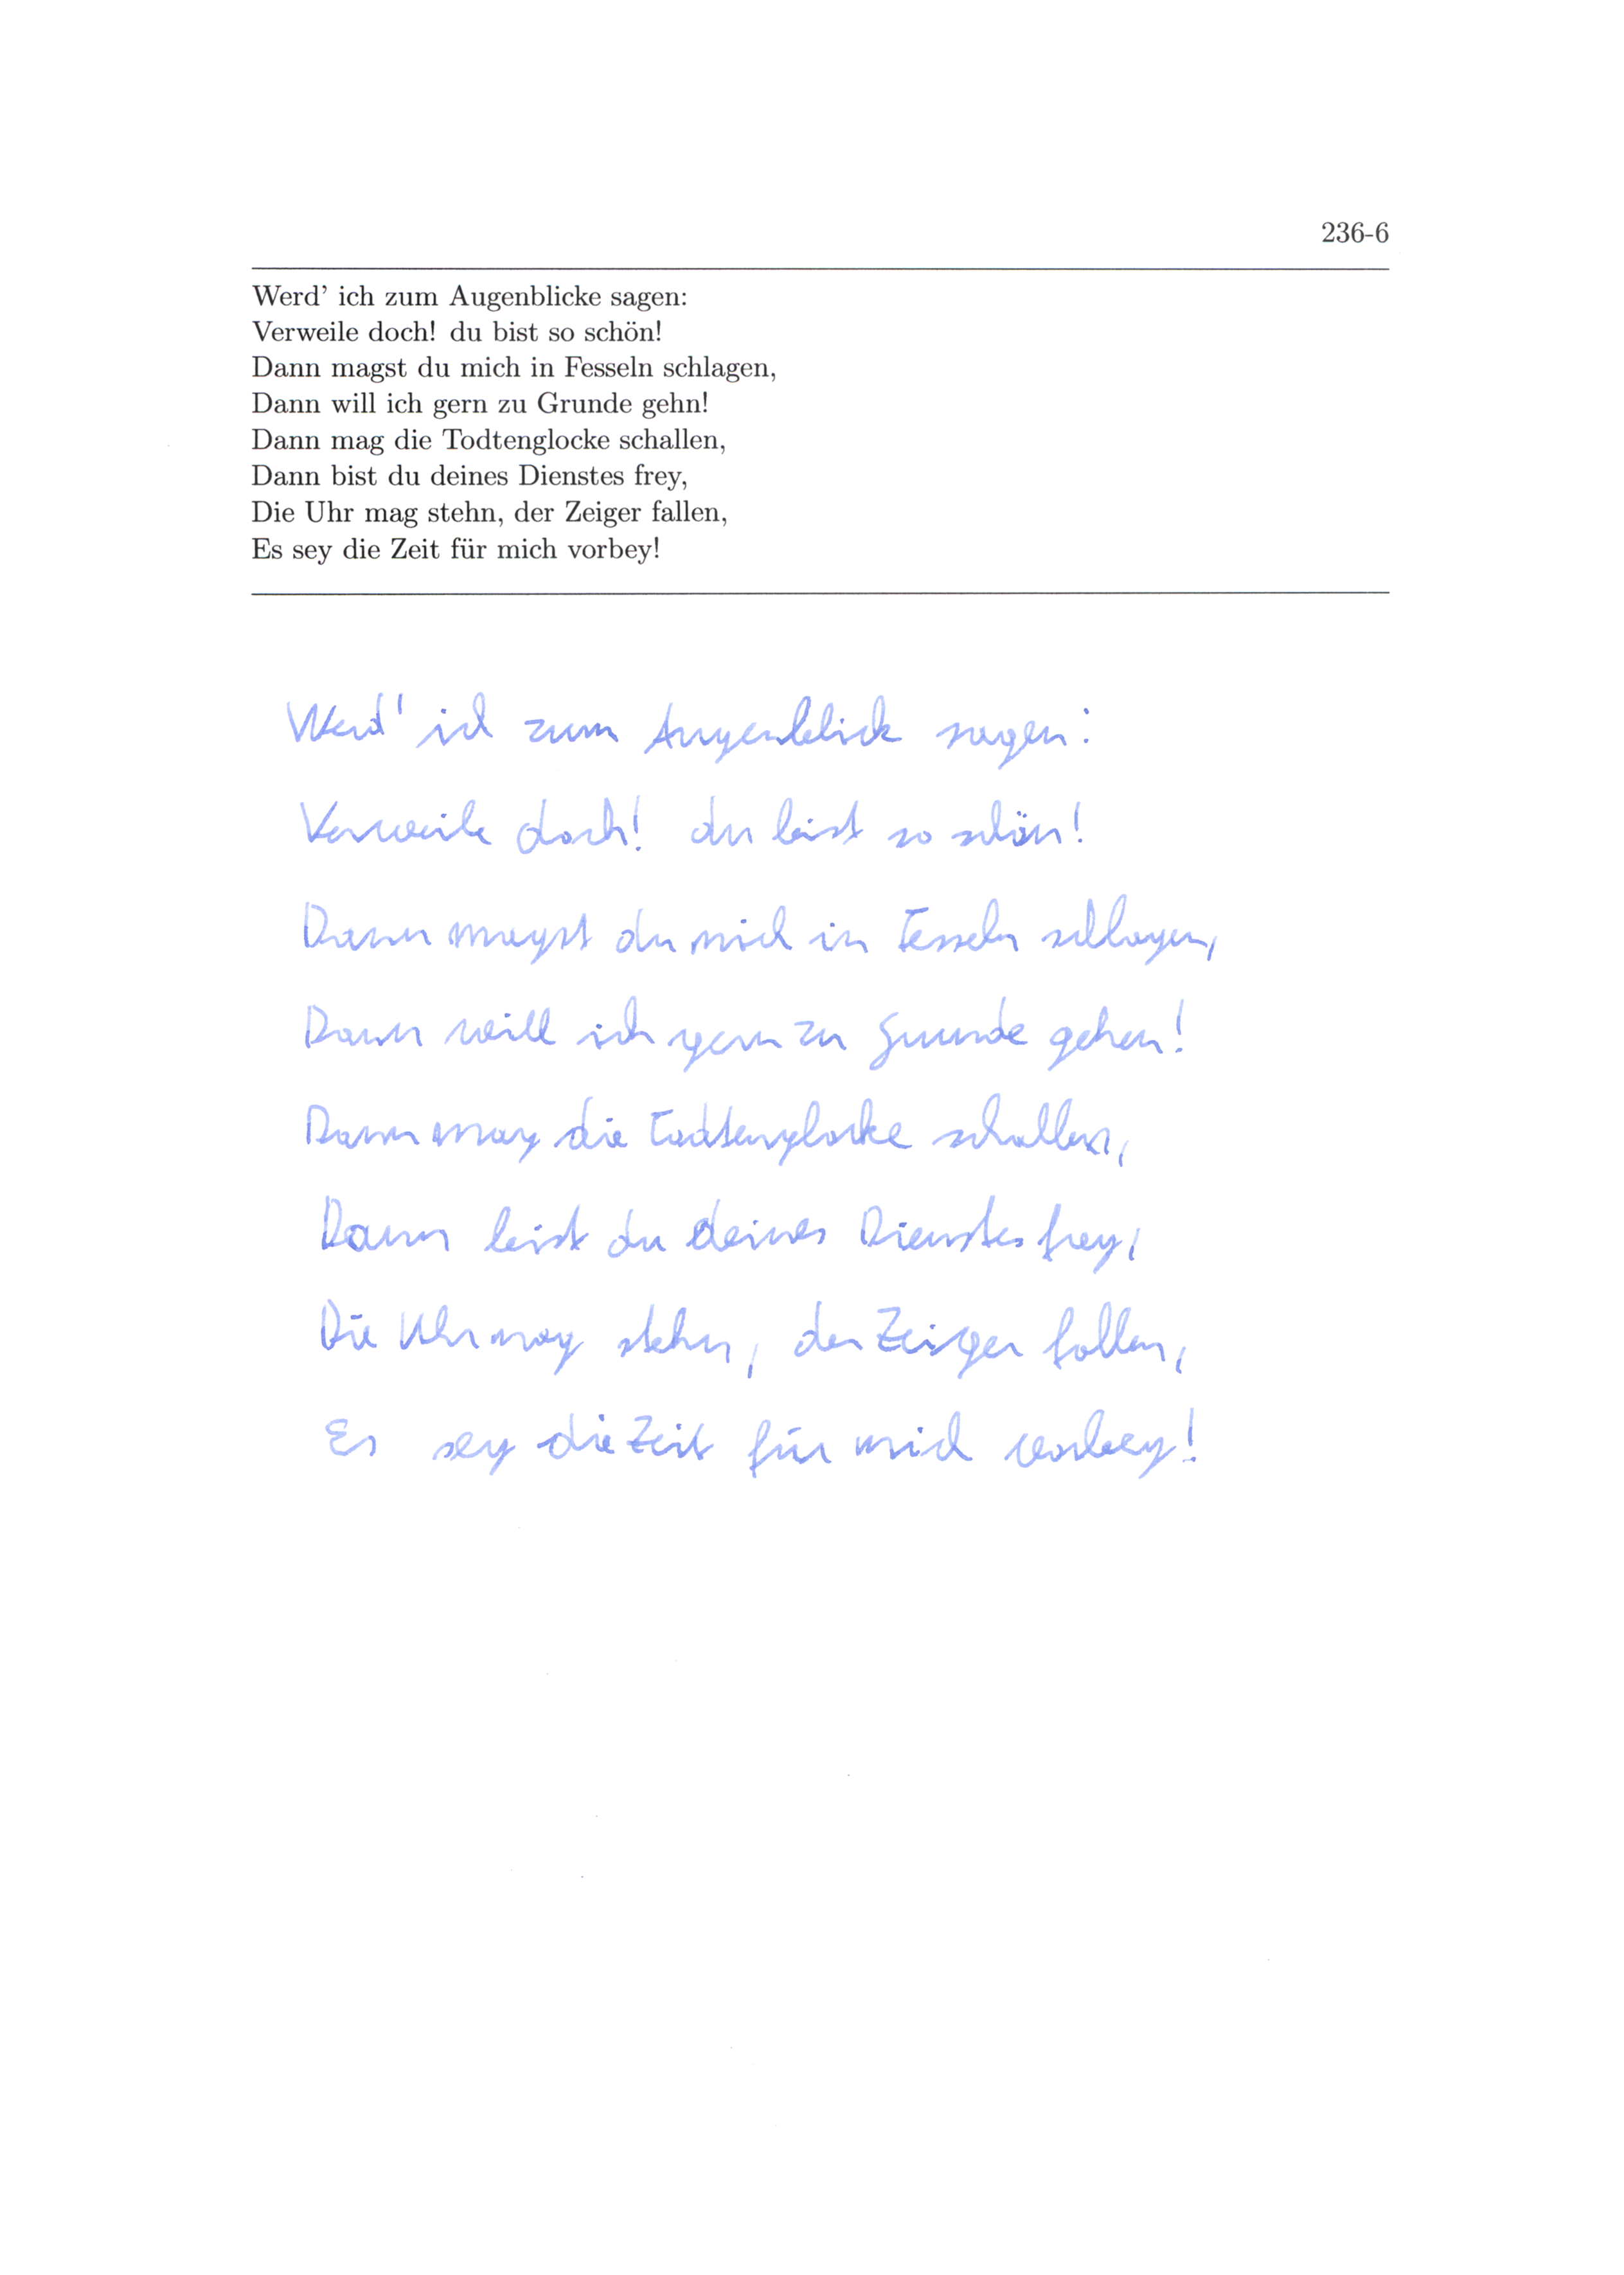 236-6
Werd' ich zum Augenblicke sagen:
Verweile doch! du bist so schön!
Dann magst du mich in Fesseln schlagen,
Dann will ich gern zu Grunde gehn!
Dann mag die Todtenglocke schallen,
Dann bist du deines Dienstes frey,
Die Uhr mag stehn, der Zeiger fallen,
Es sey die Zeit für mich vorbey!
Werd' ich zum Augenblick sagen:
Verweile doch! du bist so schön!
Dann magst du mich in Fesseln schlagen,
Dann will ich gern zu Grunde gehen!
Dann mag die Todtenglocke schallen,
Dann bist du deines Dienstes frey,
Die Uhr mag stehn, der Zeiger fallen,
Es sey die Zeit für mich vorbey!